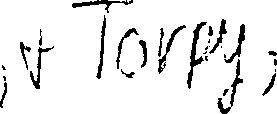 , & Torpy,